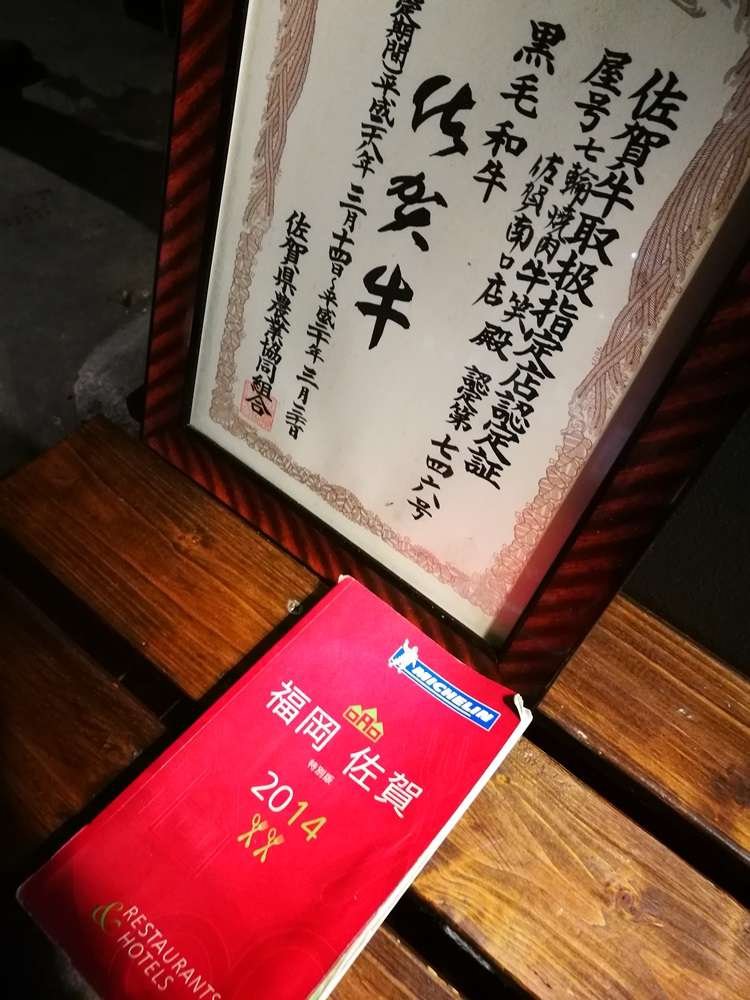 佐賀牛取扱指定店認定証
屋号七輪焼肉牛笑
佐賀南口店 殿
認定第七四六号
黒毛和牛
佐賀牛
定期間)平成二八年三月十四日～平成三十年三月三十日
佐賀県農業協同組合
MICHELIN
福岡 佐賀
特別版
2014
& RESTAURANTS
HOTELS